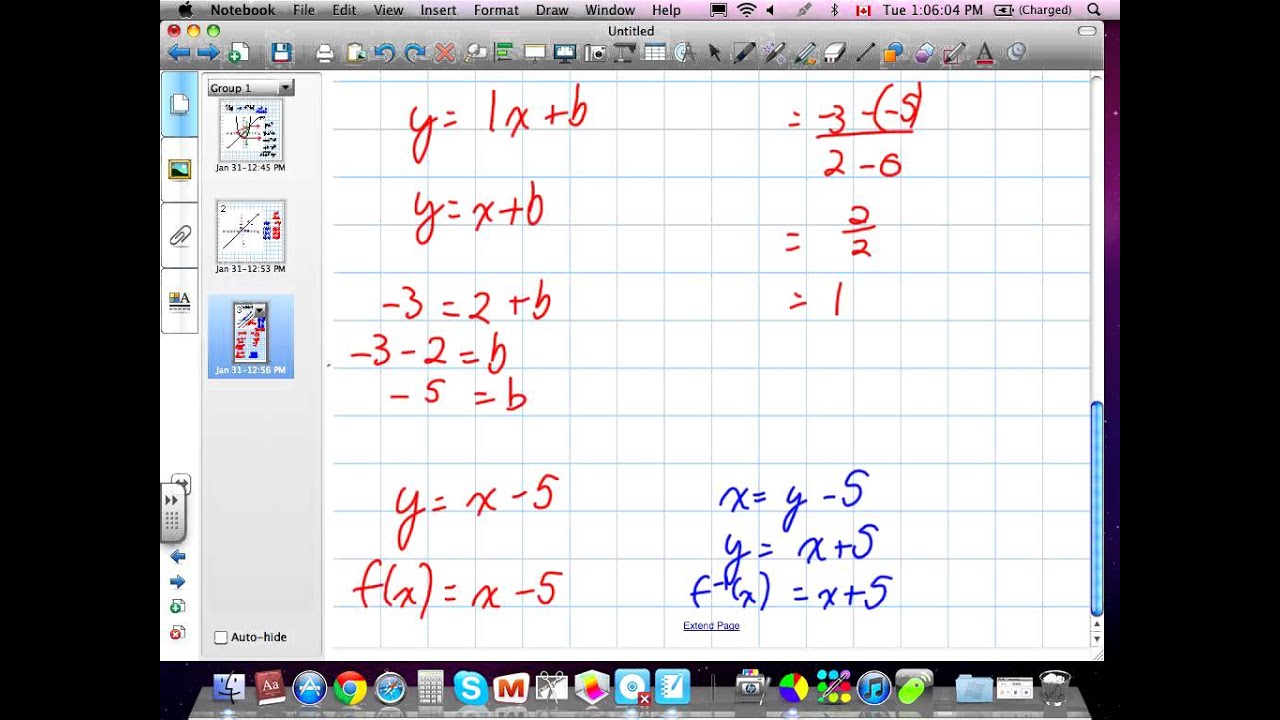 Notebook File Edit View Insert Format Draw Window Help Tue 1:06:04 PM (Charged)
Untitled
Group 1
Jan 31-12:45 PM
2
Jan 31-12:53 PM
Jan 31-12:56 PM
Auto-hide
y = 1x + b
y = x + b
-3 = 2 + b
-3 - 2 = b
-5 = b
y = x - 5
f(x) = x - 5
= -3 - (-5)
2 - 0
= 2
2
= 1
x = y - 5
y = x + 5
f⁻¹(x) = x + 5
Extend Page